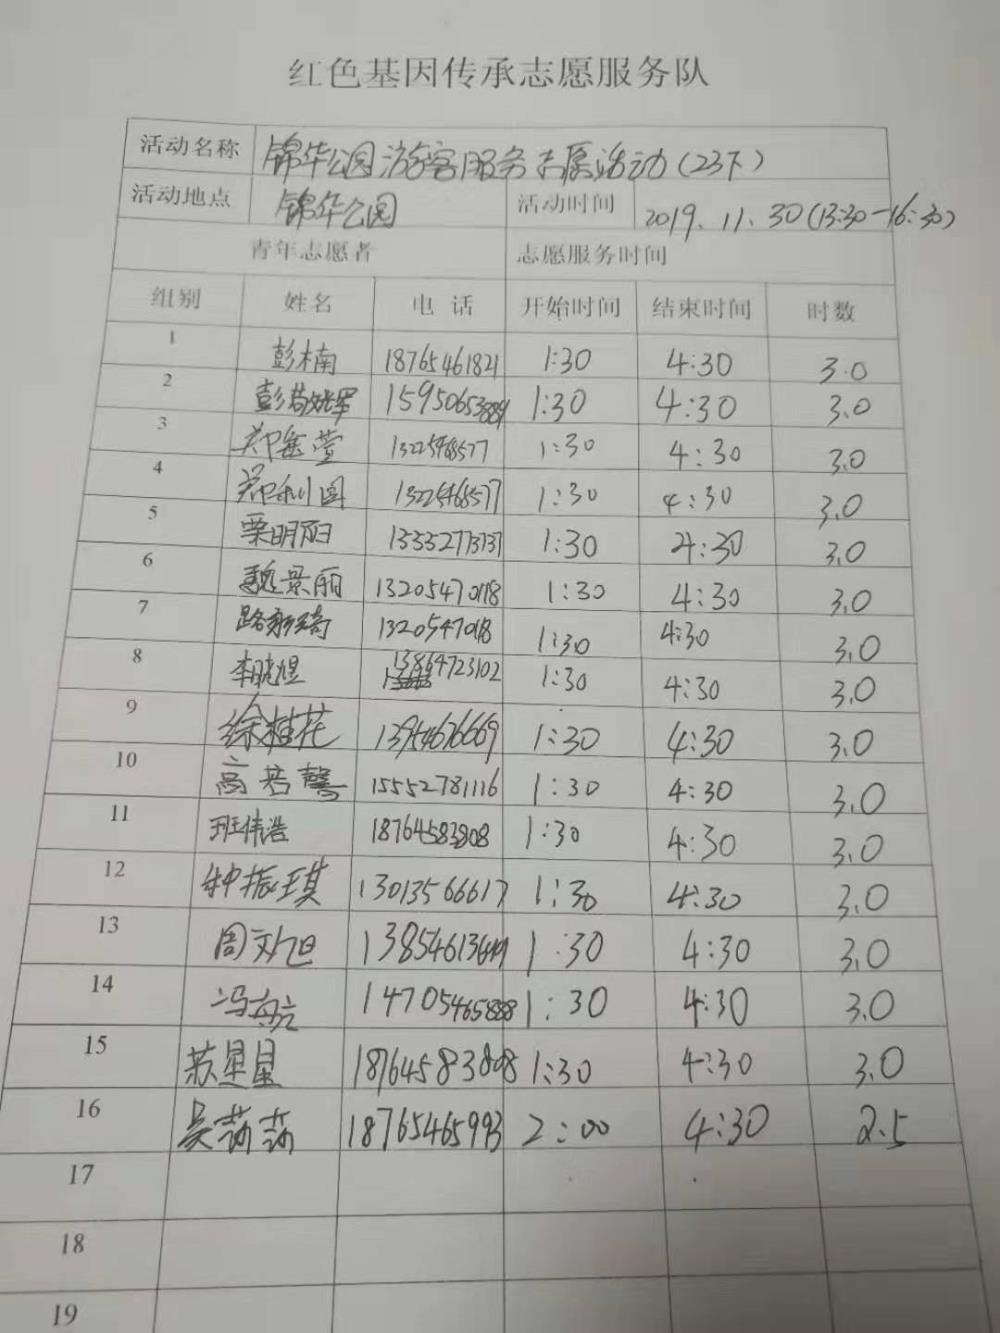 红色基因传承志愿服务队
活动名称 锦华公园游客服务志愿活动(23下)
活动地点 锦华公园 活动时间 2019.11.30(13:30-16:30)
青年志愿者 志愿服务时间
组别 姓名 电话 开始时间 结束时间 时数
1 彭楠 18765461821 1:30 4:30 3.0
2 1:30 4:30 3.0
3 1:30 4:30 3.0
4 郑利国 1:30 4:30 3.0
5 栗明阳 1:30 4:30 3.0
6 魏景丽 1:30 4:30 3.0
7 1:30 4:30 3.0
8 李晓煜 13864723102 1:30 4:30 3.0
9 徐桂花 1:30 4:30 3.0
10 高若馨 15552781116 1:30 4:30 3.0
11 班伟浩 18764583808 1:30 4:30 3.0
12 钟振琪 13013566617 1:30 4:30 3.0
13 1:30 4:30 3.0
14 14705465888 1:30 4:30 3.0
15 苏星星 18764583808 1:30 4:30 3.0
16 吴莎莎 18765465993 2:00 4:30 2.5
17
18
19